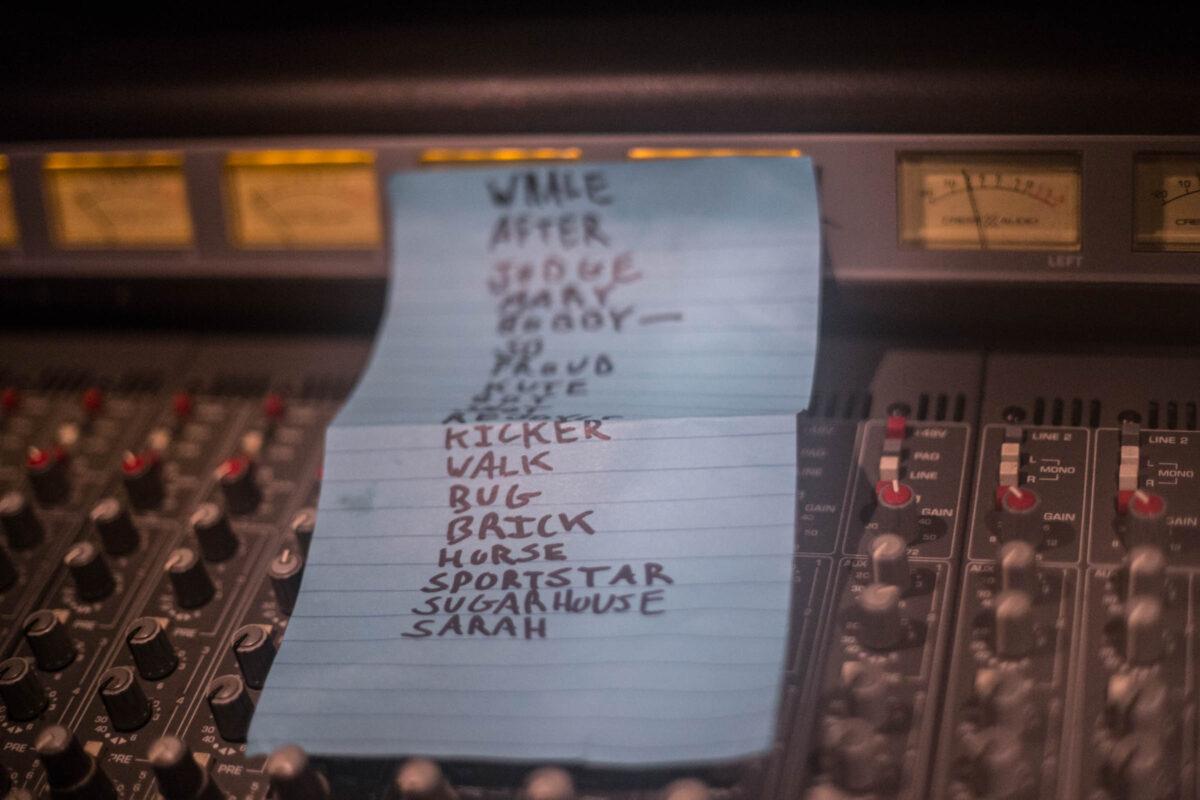 WHALE
AFTER
JUDGE
MARY
BOBBY —
SO
PROUD
KUTE
KICKER
WALK
BUG
BRICK
HORSE
SPORTSTAR
SUGARHOUSE
SARAH
CREST AUDIO
LEFT
+48V
PAD
LINE
GAIN
LINE 2
L
R
MONO
GAIN
LINE 2
L
R
MONO
GAIN
AUX
AUX
PRE
PRE
PRE